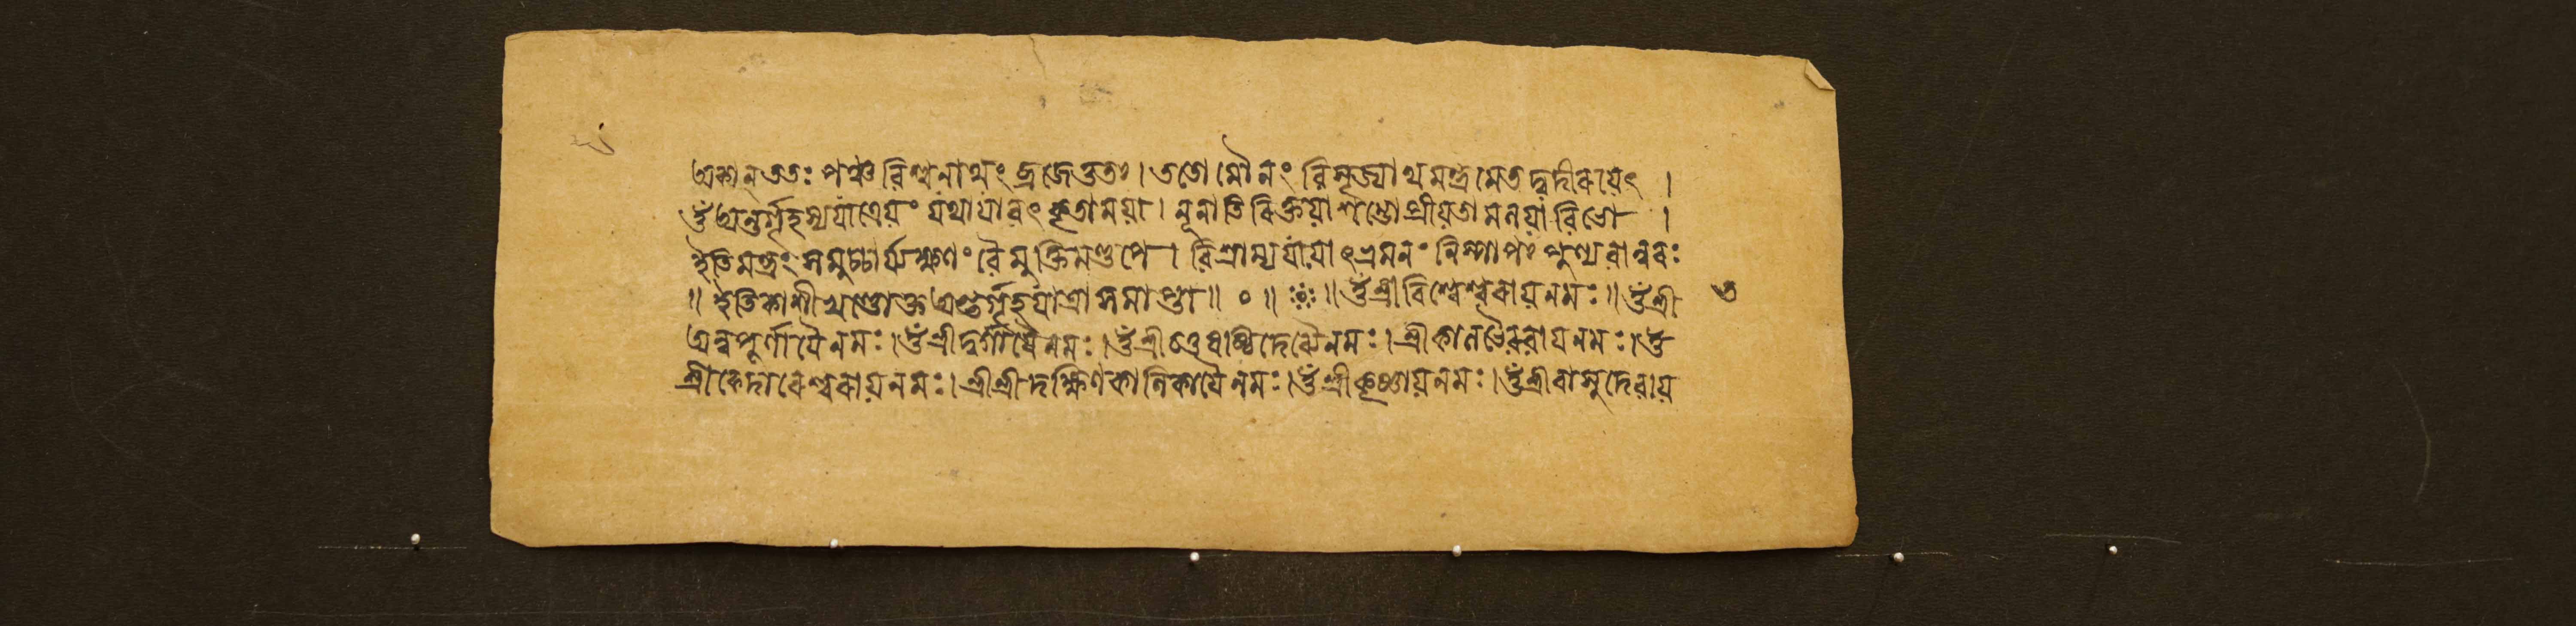 অকান্ ততঃ পঞ্চ বিশ্বনাথং ব্রজেত্ততঃ। ততো মৌনং বিসৃজ্যাথ মন্ত্রমেতমুদীরয়েৎ ।
ওঁ অন্তর্গৃহস্য যাত্রেয়ং যথাযাবৎ কৃতা ময়া। ন্যূনাতিরিক্তয়া শম্ভো প্রীয়তামনয়া বিভো ।
ইতি মন্ত্রং সমুচ্চার্য্য ক্ষণং বৈ মুক্তিমণ্ডপে। বিশ্রাম্য যায়াৎ ভবনং নিষ্পাপঃ পুণ্যবান্নরঃ
॥ ইতি কাশীখণ্ডোক্ত অন্তর্গৃহযাত্রা সমাপ্তা॥ ০ ॥ ঃ০ঃ ॥ ওঁ শ্রীবিশ্বেশ্বরায় নমঃ॥ ওঁ শ্রী ৩
অন্নপূর্ণায়ৈ নমঃ। ওঁ শ্রীদুর্গায়ৈ নমঃ। ওঁ শ্রী দেব্যৈ নমঃ। শ্রীকালভৈরবায় নমঃ। ওঁ
শ্রীকেদারেশ্বরায় নমঃ। শ্রীশ্রীদক্ষিণকালিকায়ৈ নমঃ। ওঁ শ্রীকৃষ্ণায় নমঃ। ওঁ শ্রীবাসুদেবায়